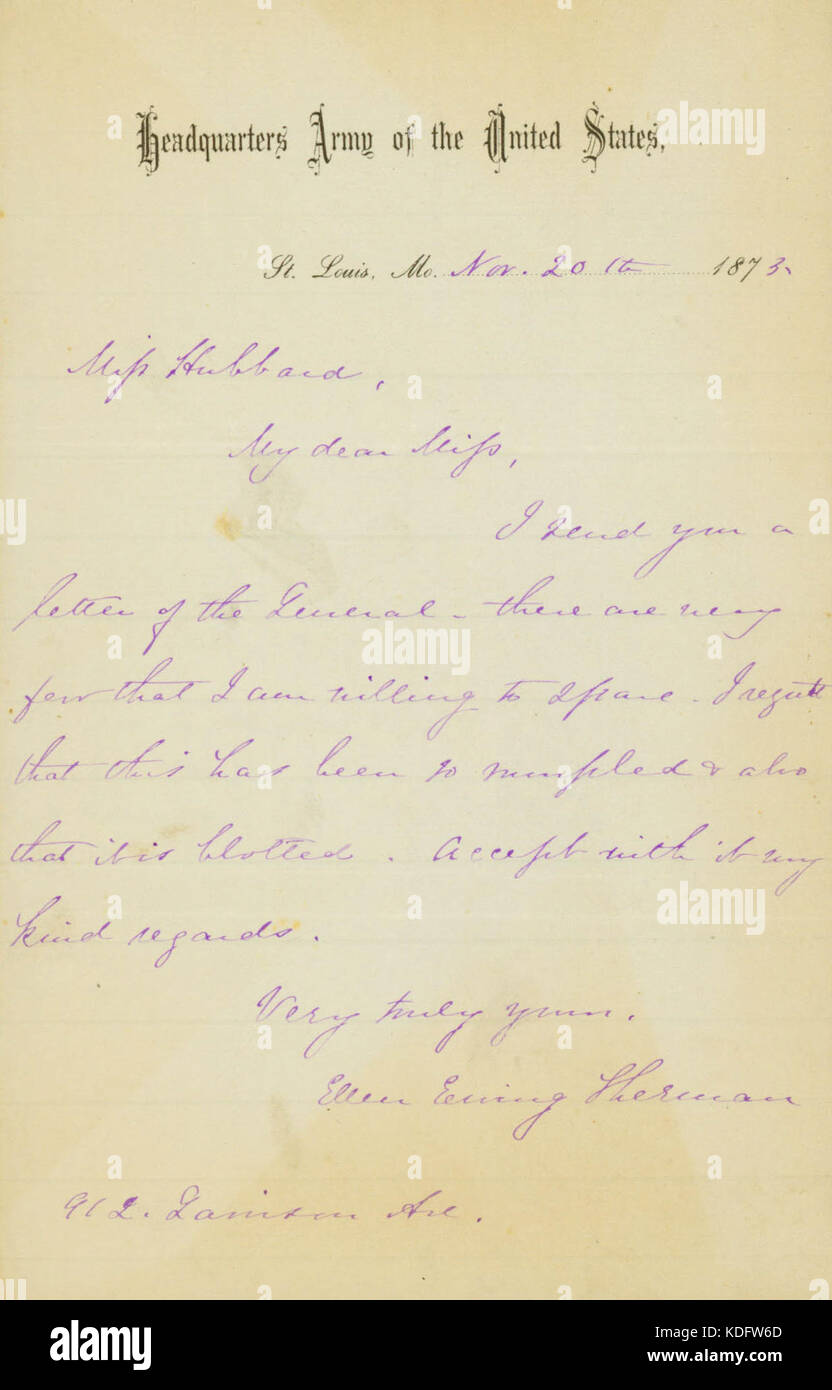 Headquarters Army of the United States,
St. Louis, Mo. Nov. 20th 1873.
Miss Hubbard,
My dear Miss,
I send you a
letter of the General - there are very
few that I am willing to spare - I regret
that this has been so rumpled & also
that it is blotted. Accept with it my
kind regards.
Very truly yours.
Ellen Ewing Sherman
912. Garrison Ave.
alamy
Image ID: KDFW6D
www.alamy.com